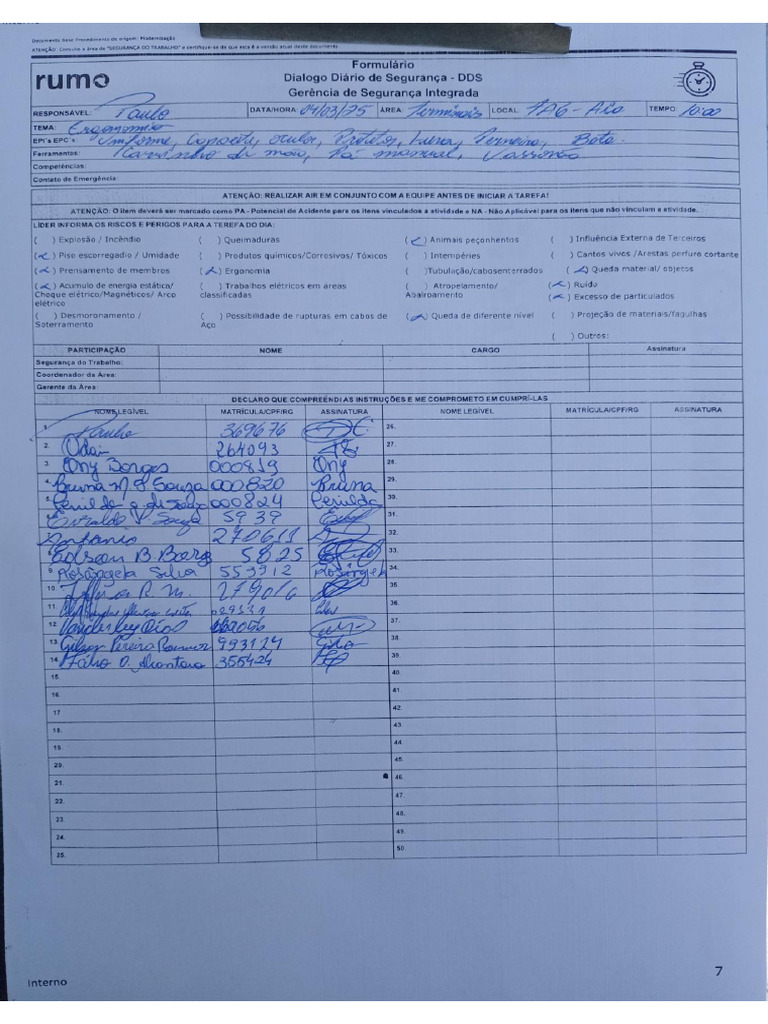 Interno
Documento Base Procedimento de origem: Modernização
ATENÇÃO: Consulte a área de "SEGURANÇA DO TRABALHO" e certifique-se de que esta é a versão atual deste documento
rumo
Formulário
Dialogo Diário de Segurança - DDS
Gerência de Segurança Integrada
RESPONSÁVEL: Paulo DATA/HORA: 04/03/25 ÁREA: Terminais LOCAL: TEMPO: 10:00
TEMA: Ergonomia
EPI's EPC's Uniforme, Capacete, oculos, Protetor, Luva, Perneira, Bota.
Ferramentas: Carrinho di mão, Pá manual, Vassourão
Competências:
Contato de Emergência:
ATENÇÃO: REALIZAR AIR EM CONJUNTO COM A EQUIPE ANTES DE INICIAR A TAREFA!
ATENÇÃO: O item deverá ser marcado como PA - Potencial de Acidente para os itens vinculados a atividade e NA - Não Aplicável para os itens que não vinculam a atividade.
LÍDER INFORMA OS RISCOS E PERIGOS PARA A TEREFA DO DIA:
( ) Explosão / Incêndio ( ) Queimaduras ( ) Animais peçonhentos ( ) Influência Externa de Terceiros
( ) Piso escorregadio / Umidade ( ) Produtos químicos/Corrosivos/ Tóxicos ( ) Intempéries ( ) Cantos vivos /Arestas perfuro cortante
( ) Prensamento de membros ( ) Ergonomia ( )Tubulação/cabosenterrados ( ) Queda material/ objetos
( ) Acumulo de energia estática/ Choque elétrico/Magnéticos/ Arco elétrico ( ) Trabalhos elétricos em areas classificadas ( ) Atropelamento/ Abalroamento ( ) Ruído
( ) Excesso de particulados
( ) Desmoronamento / Soterramento ( ) Possibilidade de rupturas em cabos de Aço ( ) Queda de diferente nível ( ) Projeção de materiais/fagulhas
( ) Outros:
PARTICIPAÇÃO NOME CARGO Assinatura
Segurança do Trabalho:
Coordenador da Área:
Gerente da Área:
DECLARO QUE COMPREENDI AS INSTRUÇÕES E ME COMPROMETO EM CUMPRÍ-LAS
NOME LEGÍVEL MATRÍCULA/CPF/RG ASSINATURA NOME LEGÍVEL MATRÍCULA/CPF/RG ASSINATURA
1. Paulo 369676 26.
2. Odair 264093 27.
3. Ony Borges 000819 Ony 28.
4. Bruna M. S. Souza 000820 Bruna 29.
5. Cenilda 000824 Cenilda 30.
Souza 5939 31.
Antonio 270611 32.
Edson B. Borg 5825 33.
9. Rosângela Silva 553912 Rosângela 34.
10. R. M. 279016 35.
11. 36.
12. Vanderley Dias 37.
13. Gilson Pereira 993124 38.
14. Fabio O. Alcantara 355424 39.
15. 40.
16. 41.
17 42.
18. 43.
19. 44.
20.
21. 46
22. 47.
23. 48.
24. 49.
25. 50.
7
Interno